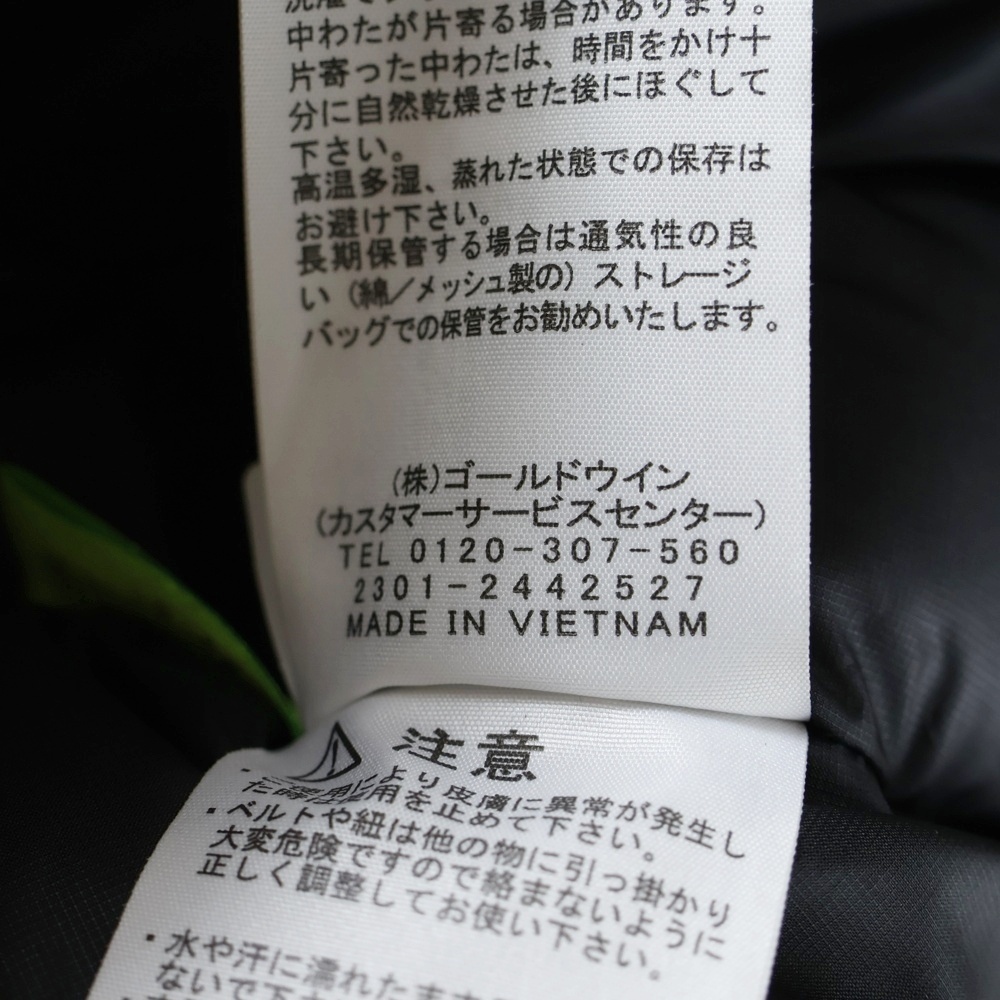 中わたが片寄る場合があります。
片寄った中わたは、時間をかけ十
分に自然乾燥させた後にほぐして
下さい。
高温多湿、蒸れた状態での保存は
お避け下さい。
長期保管する場合は通気性の良
い（綿／メッシュ製の）ストレージ
バッグでの保管をお勧めいたします。
(株)ゴールドウイン
(カスタマーサービスセンター)
TEL 0120-307-560
2301-2442527
MADE IN VIETNAM
注意
より皮膚に異常が発生し
用を止めて下さい。
・ベルトや紐は他の物に引っ掛かり
大変危険ですので絡まないように
正しく調整してお使い下さい。
・水や汗に濡れたまま
ないで下